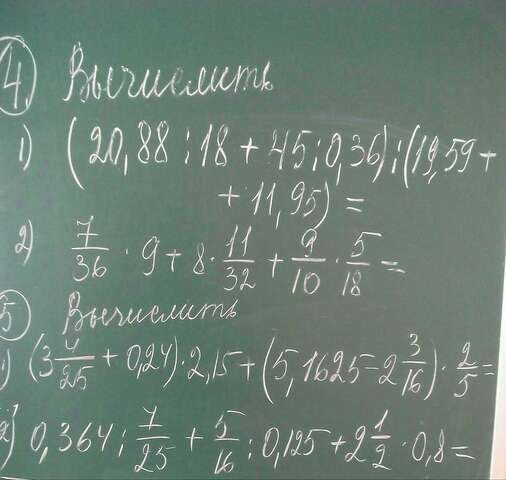 4. Вычислить
1) (20,88 : 18 + 45 : 0,36) : (19,59 +
+ 11,95) =
2) 7/36 · 9 + 8 · 11/32 + 9/10 · 5/18 =
5 Вычислить
1) (3 4/25 + 0,24) · 2,15 + (5,1625 - 2 3/16) · 2/5 =
2) 0,364 : 7/25 + 5/16 : 0,125 + 2 1/2 · 0,8 =